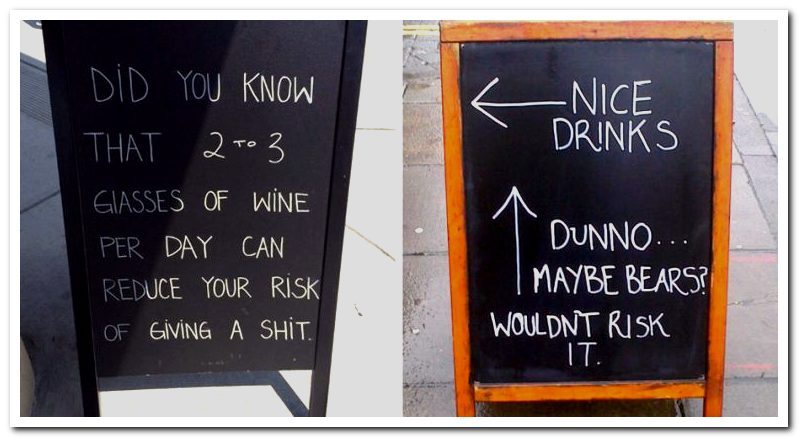 DiD YOU KNOW
THAT 2 TO 3
GLASSES OF WiNE
PER DAY CAN
REDUCE YOUR RiSK
OF GiViNG A SHiT.
NICE
DRINKS
DUNNO...
MAYBE BEARS?
WOULDNT RISK
IT.